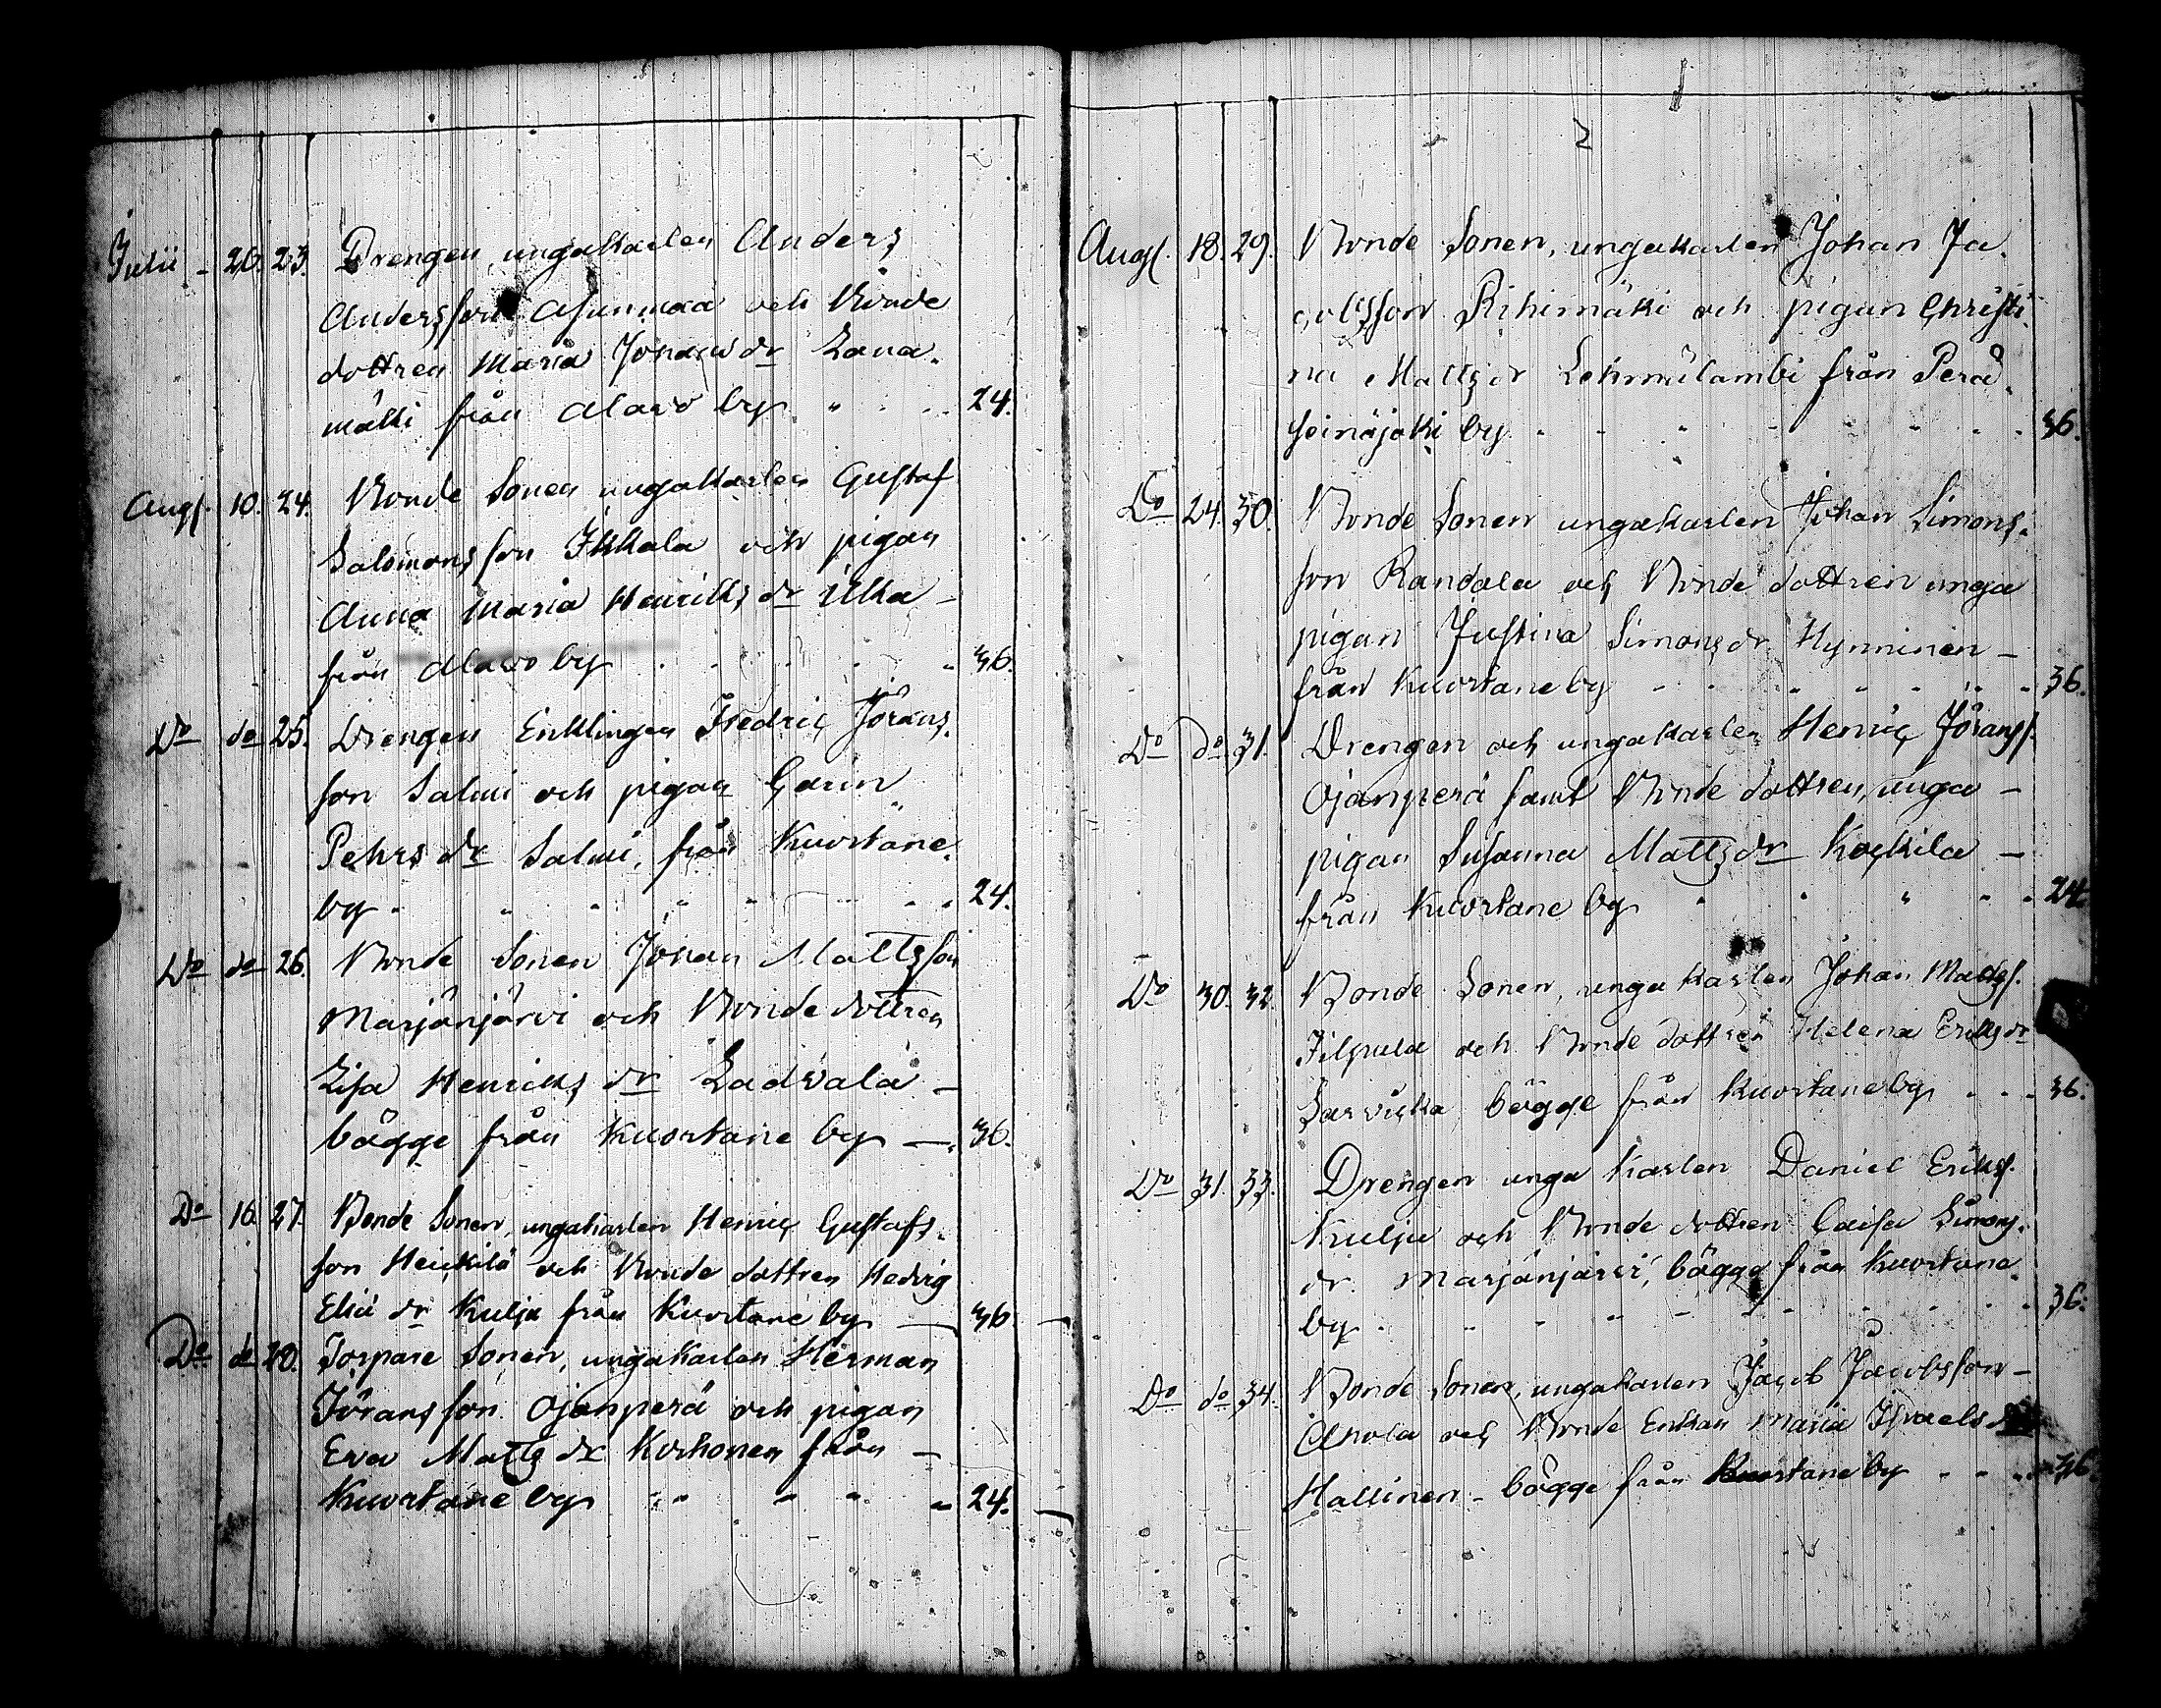 Julii - 26. 23. Drengen, ungakarlen Anders
Andersson Asunmaa och Bonde
dottren Maria Jonaedr Lana-
mäki från Alavo by 24.
Augs. 10. 24. Bonde Sonen ungakarlen Gustaf
Salomonsson Ikkala och pigan
Anna Maria Henriksdr Ulka -
från Alavo by 36.
Do do 25. Drengen Enklingen Fredric Jörans-
son Salmi och pigan Carin
Pehrsdr Salmi, från Kuortane
by 24.
Do do 26. Bonde Sonen Johan Mattsson
Marjänjärvi och Bonde dottren
Lisa Henriksdr Ladvala -
bägge från Kuortane by - 36.
Do 16. 27. Bonde Sonen, ungakarlen Henric Gustafs-
son Heickilä och Bonde dottren Hedvig
Eliæ dr Kulju från Kuortane by - 36
Do do 28. Torpare Sonen, ungakarlen Herman
Jöransson Ojanperä och pigan
Eva Mattsdr Korhonen från -
Kuortane by 24.
Augs. 18. 29. Bonde Sonen, ungakarlen Johan Ja-
cobsson Rihimäki och pigan Christi-
na Mattsdr Lehmülambi från Perä-
seinäjoki by 36.
Do 24. 30. Bonde Sonen ungakarlen Johan Simons-
son Randala och Bonde dottren unga
pigan Justina Simonsdr Hynninen -
från Kuortane by 36.
Do do 31. Drengen och ungakarlen Henric Jöranss.
Ojanperä samt Bonde dottren, unga -
pigan Susanna Mattsdr Kockila -
från Kuortane by 24
Do 30. 32 Bonde Sonen, ungakarlen Johan Matss.
Filpula och Bonde dottren Helena Eriksdr
Sarvicka, bägge från Kuortane by 36.
Do 31. 33. Drengen unga karlen Daniel Erikss.
Kulju och Bonde dottren Caisa Simons-
dr. Marjänjärvi, bägge från Kuortane
by 36.
Do do 34. Bonde Sonen, ungakarlen Jacob Jacobsson -
Akola och Bonde Enkan Maria Israelsdr
Hallinen - bägge från Kuortane by 36.